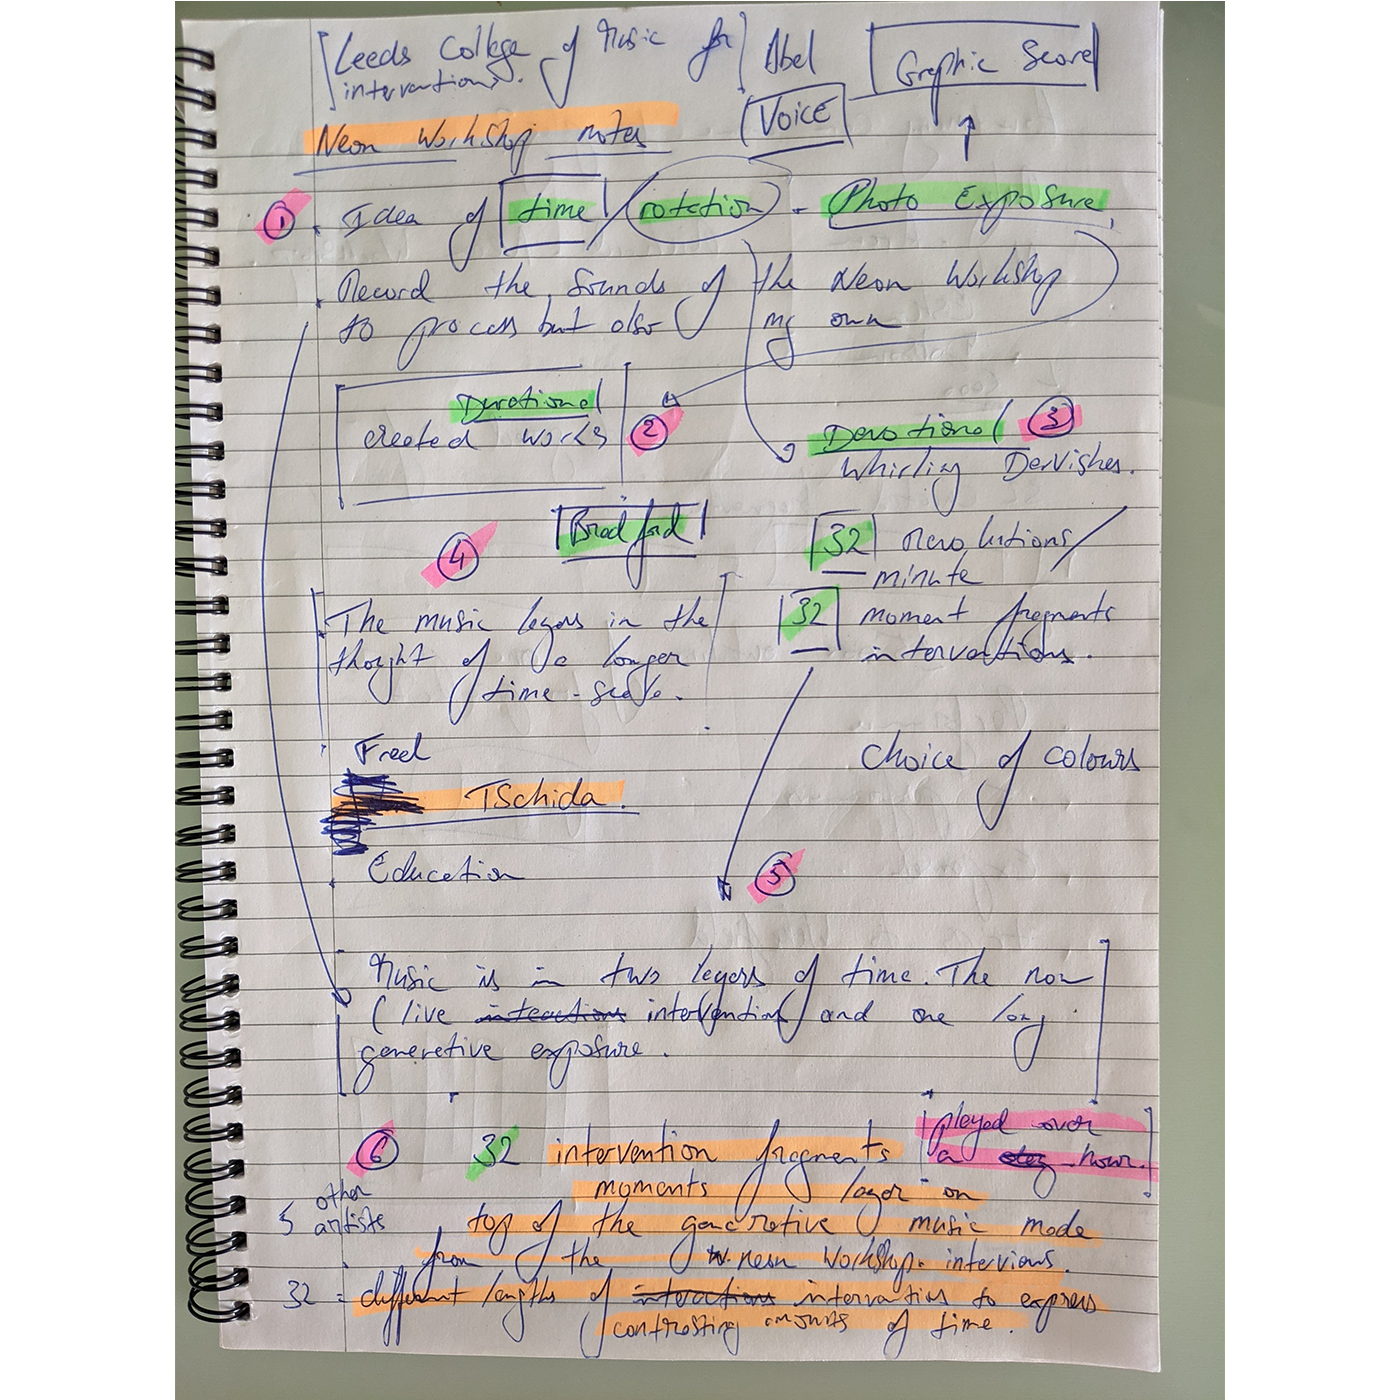 Leeds College of Music for
interventions.
Abel
Graphic Score
VOICE
Neon Workshop notes
1 . Idea of time / rotation . Photo Exposure,
. Record the sounds of the Neon Workshop
to process but also my own
Durational
created works
2
Devotional 3
Whirling Dervishes.
Bradford
4
32 revolutions/
minute
32 moment fragments
interventions.
The music layers in the
thought of a longer
time-scale.
Fred
Tschida.
Choice of colours
. Education
5
Music is in two layers of time. The now
(live interactions intervention) and one long
generative exposure.
6 32 intervention fragments
played over
a hour.
moments layer on
5 other
artists
top of the generative music made
from the neon workshop. interviews.
32 = different lengths of interactions interventions to express
contrasting amounts of time.